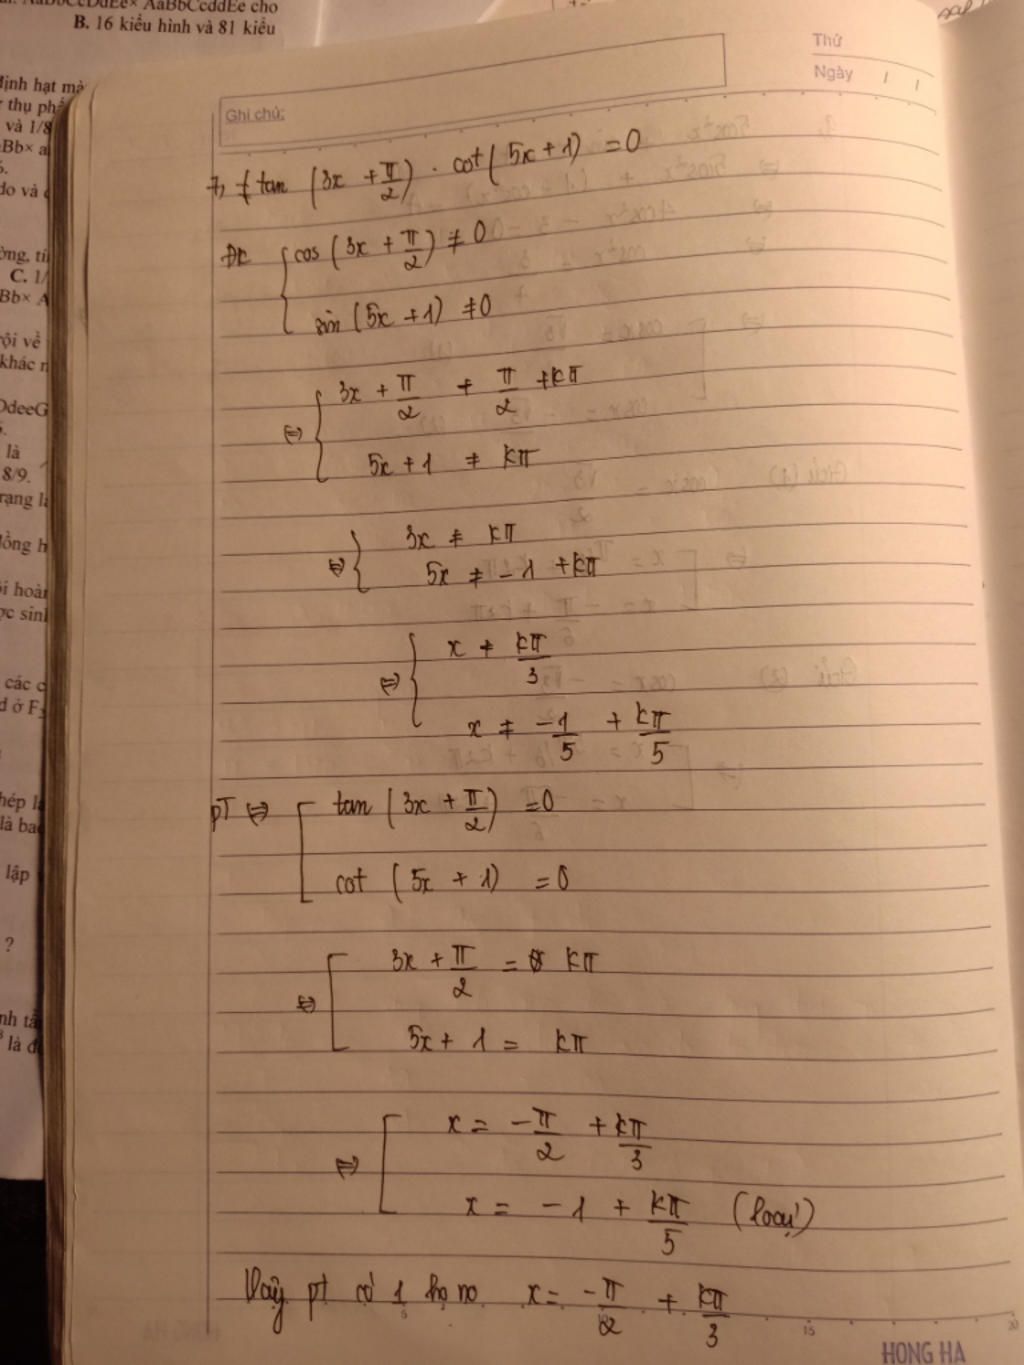 AaBbCcDdEe× AaBbCcddEe cho
B. 16 kiểu hình và 81 kiểu
định hạt mà
thụ ph
và 1/8
Bb× a
do và
C. 1/
Bb× A
rội về
khác n
DdeeG
là
8/9.
rạng l
lồng h
i hoàn
ợc sinh
các c
d ở F
hép l
là ba
lập
?
nh t
là đ
Thứ
Ngày / /
Ghi chú:
7, tan (3x + π/2) . cot (5x + 1) = 0
ĐK { cos (3x + π/2) ≠ 0
sin (5x + 1) ≠ 0
⇔ { 3x + π/2 ≠ π/2 + kπ
5x + 1 ≠ kπ
⇔ { 3x ≠ kπ
5x ≠ -1 + kπ
⇔ { x ≠ kπ/3
x ≠ -1/5 + kπ/5
PT ⇔ [ tan (3x + π/2) = 0
cot (5x + 1) = 0
⇔ [ 3x + π/2 = kπ
5x + 1 = kπ
⇔ [ x = -π/2 + kπ/3
x = -1 + kπ/5 (loại)
Vậy pt có 1 họ no x = -π/2 + kπ/3
5 15 20
HONG HA